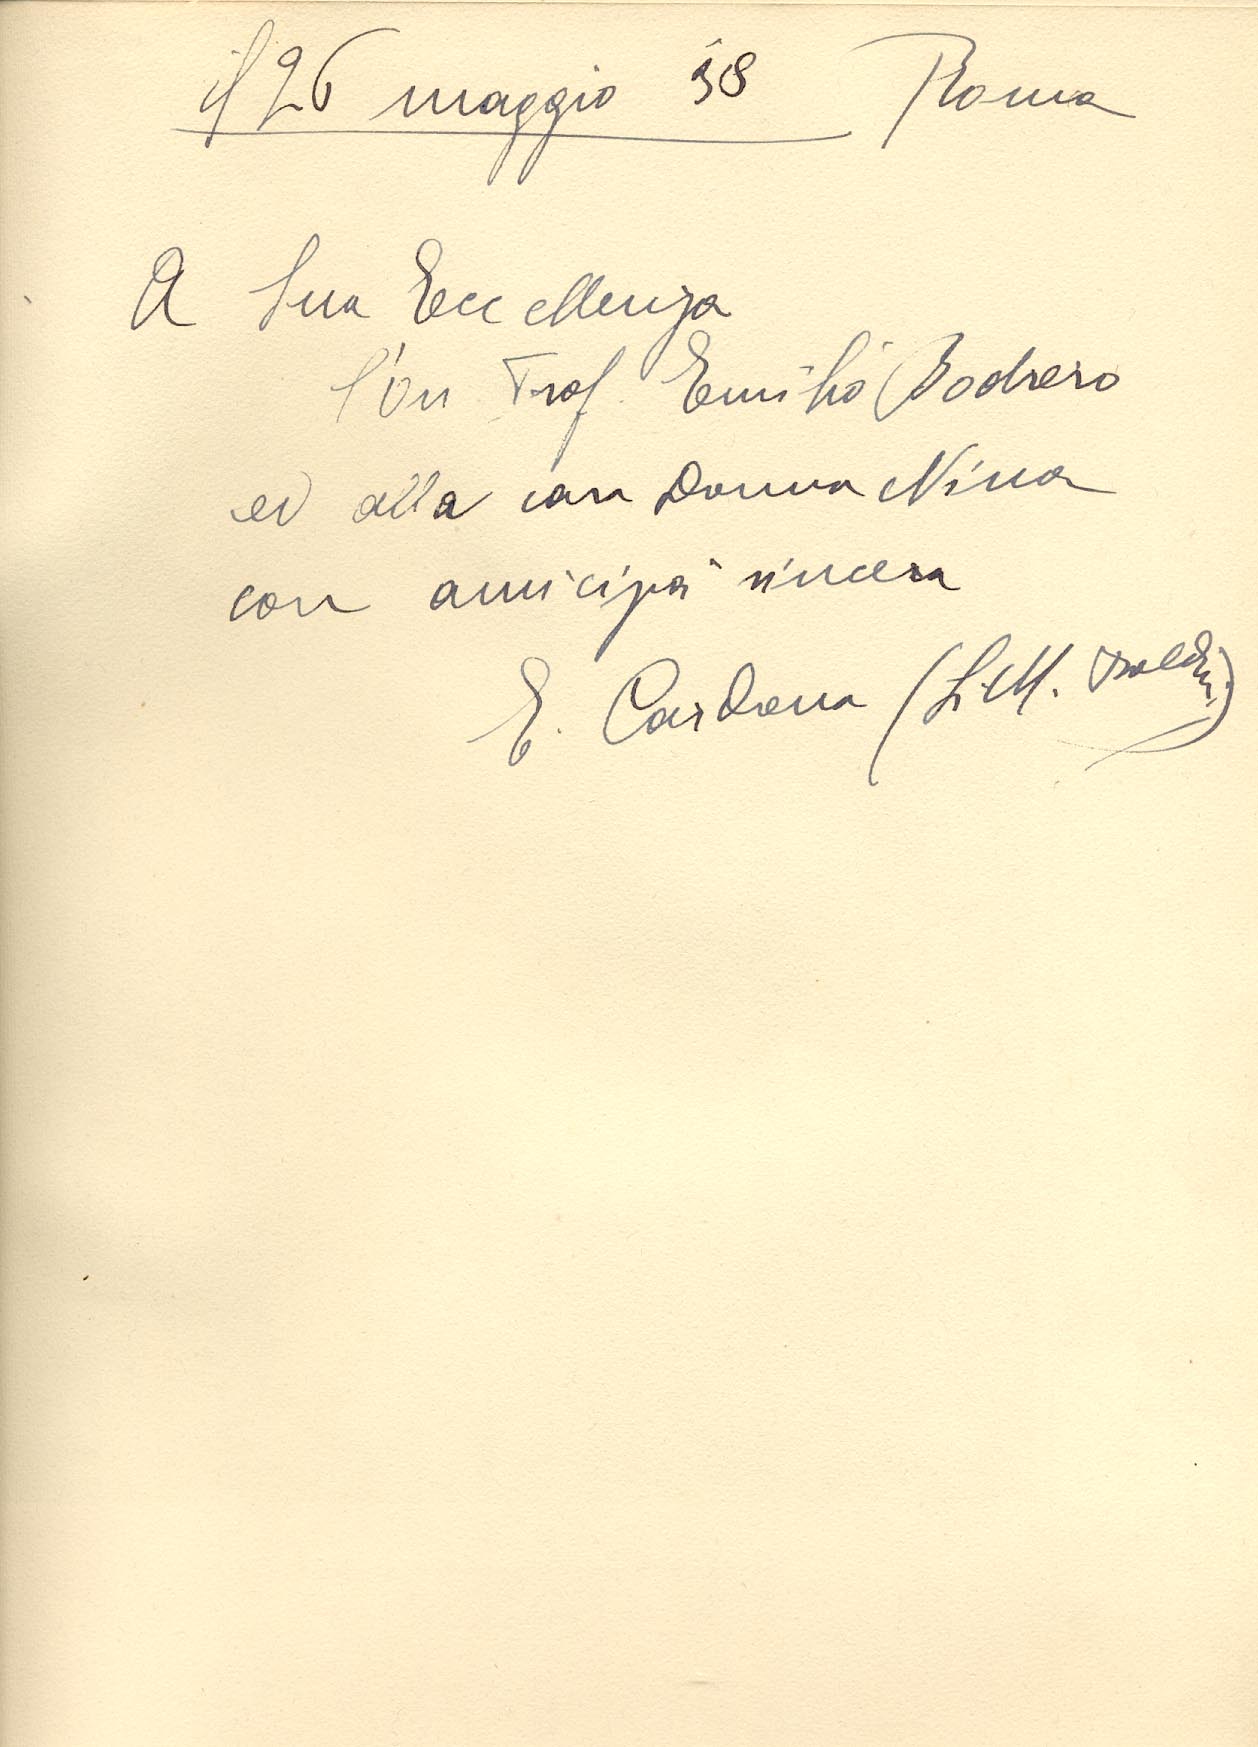 il 26 maggio 38 Roma
A Sua Eccellenza
l'On Prof. Emilio Bodrero
ed alla cara Donna Nina
con amicizia sincera
E. Cardona (L. M.